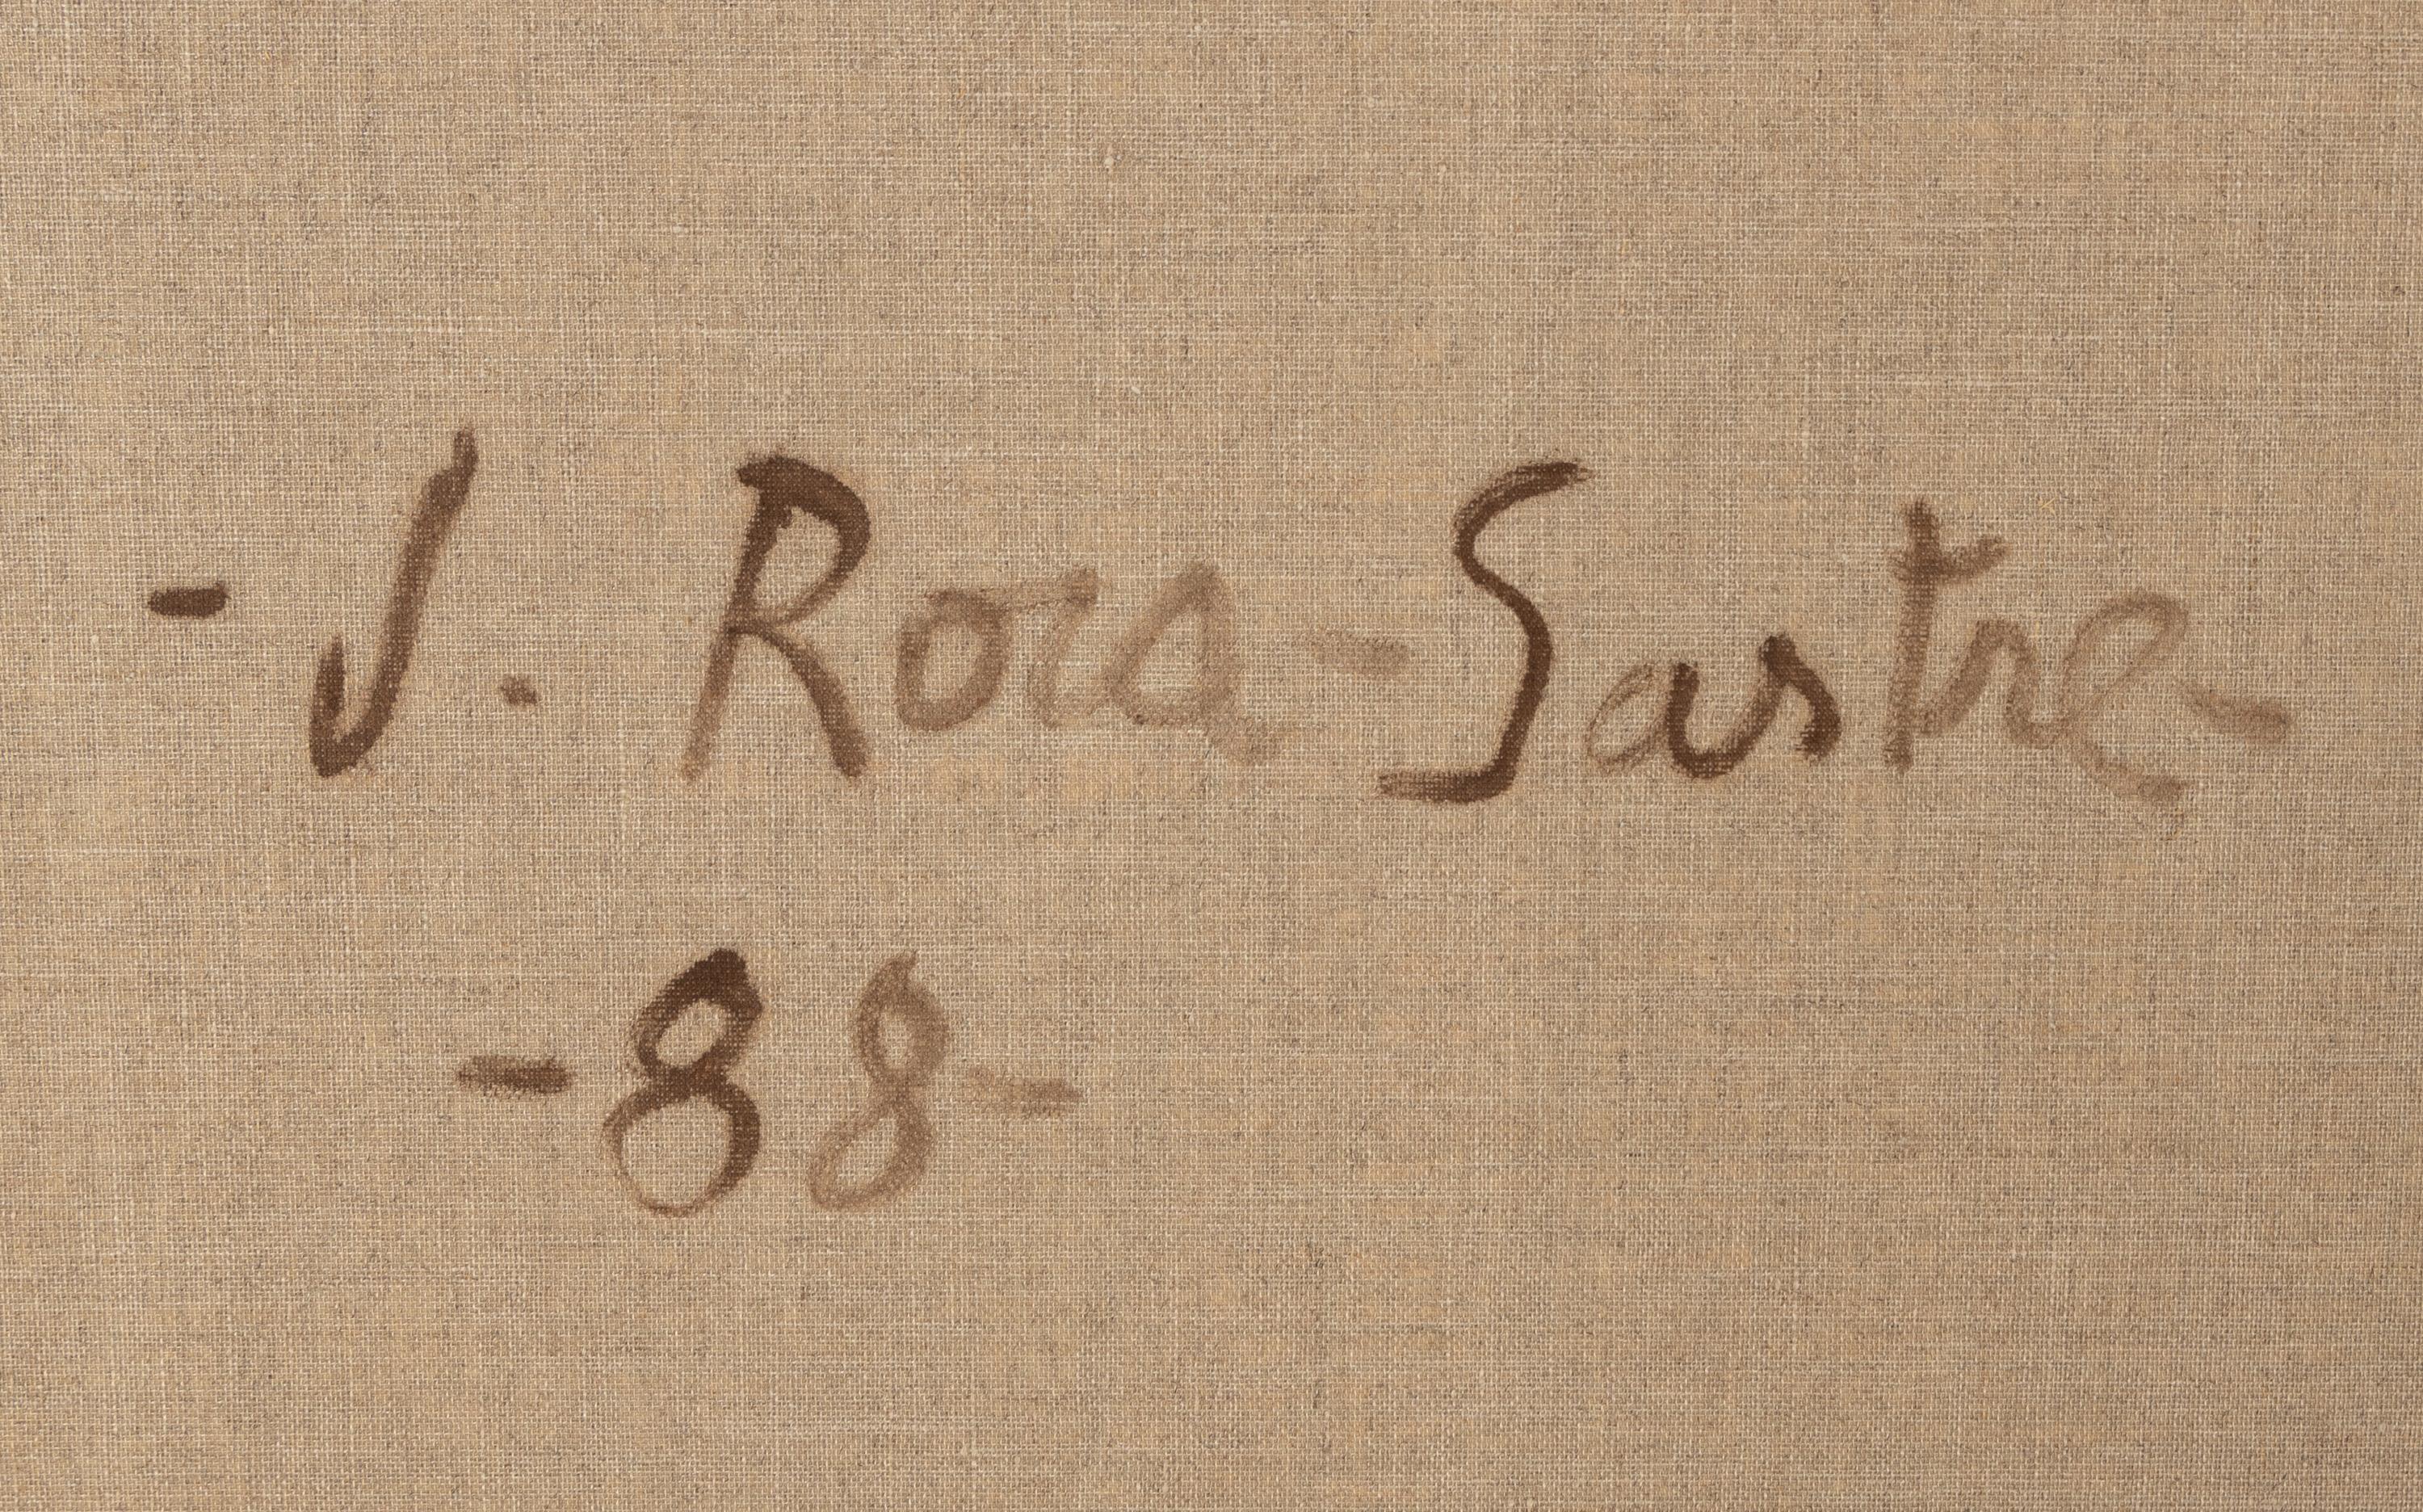 - J. Roca-Sastre-
-88-